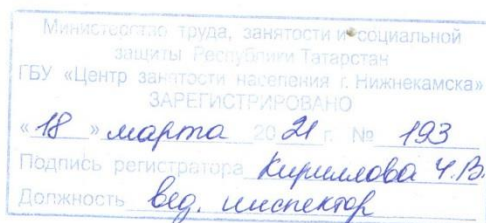 Министерство труда, занятости и социальной
защиты Республики Татарстан
ГБУ «Центр занятости населения г. Нижнекамска»
ЗАРЕГИСТРИРОВАНО
«18» марта 2021 г. № 193
Подпись регистратора Кириллова Ч.В.
Должность вед. инспектор